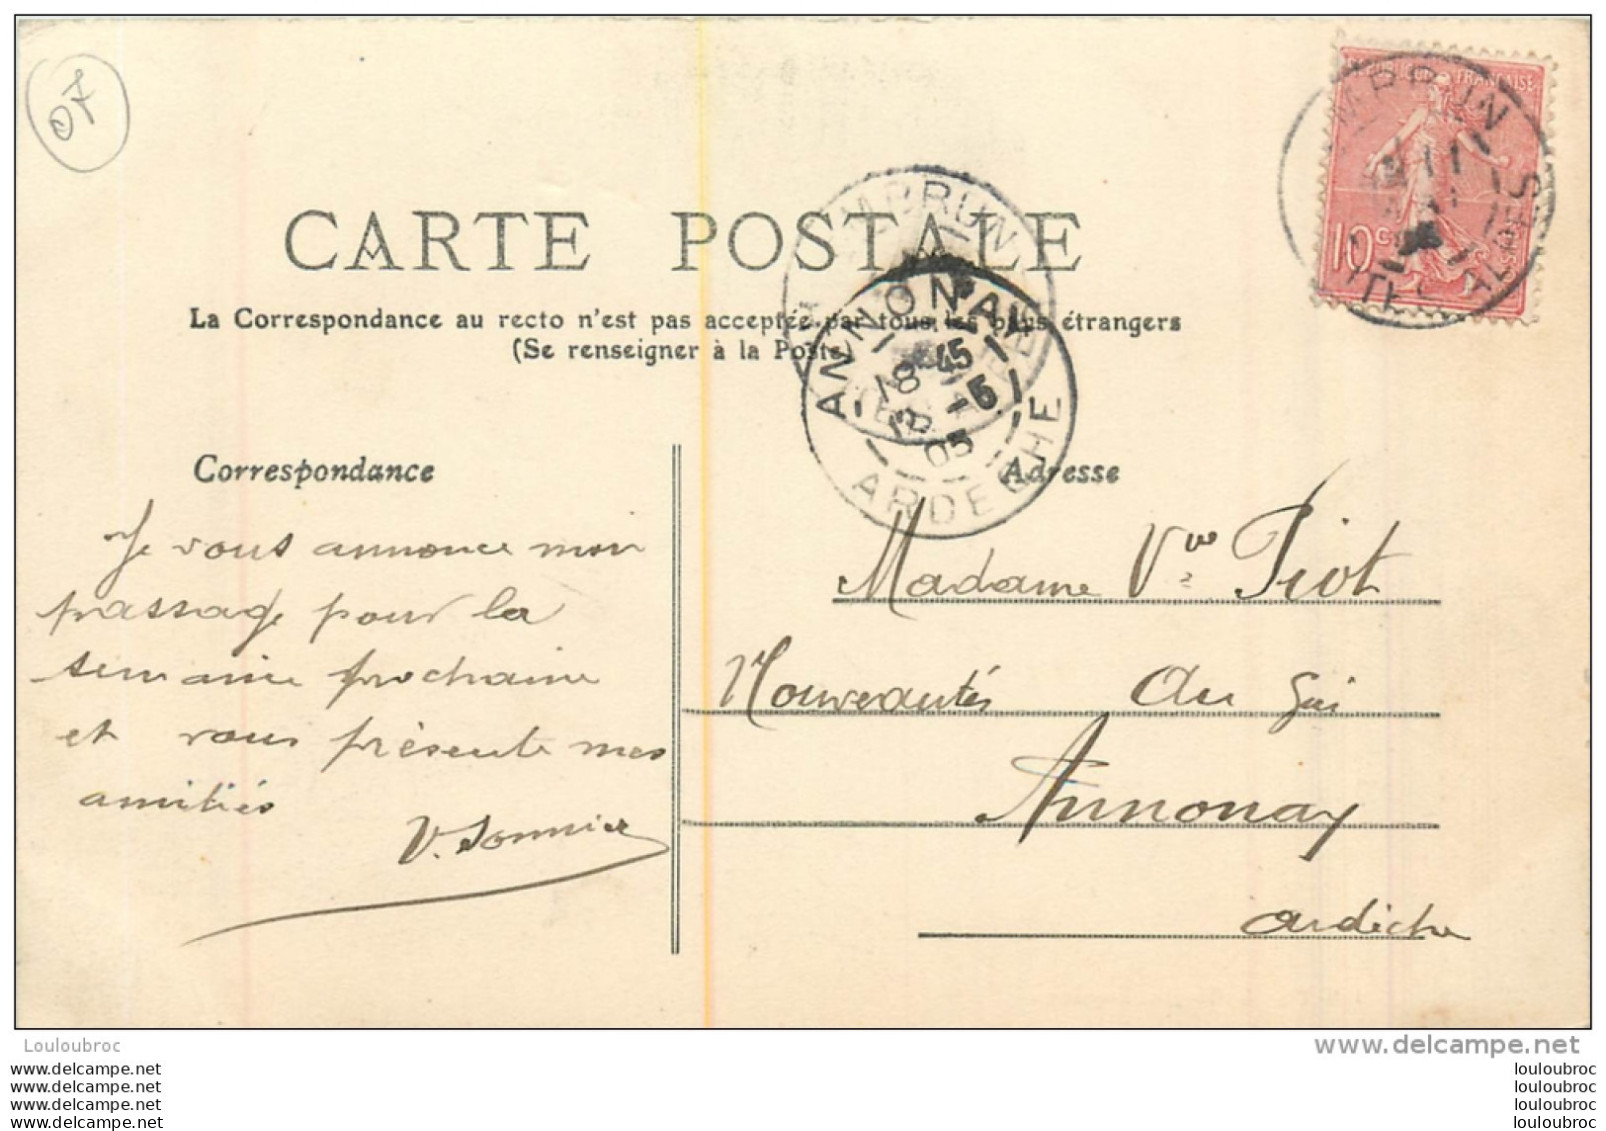 07
RÉPUBLIQUE FRANÇAISE
10c
CARTE POSTALE
La Correspondance au recto n'est pas acceptée par tous les pays étrangers
(Se renseigner à la Poste
EMBRUN
HTES ALPES
ANNONAY
18 45
12 -5
05
ARDECHE
Correspondance
Je vous annonce mon
passage pour la
semaine prochaine
et vous présente mes
amitiés
V. Sonnier
Adresse
Madame Vve Piot
Nouveautés au Gui
Annonay
Ardèche
Louloubroc
www.delcampe.net
www.delcampe.net
www.delcampe.net
www.delcampe.net
www.delcampe.net
louloubroc
louloubroc
louloubroc
louloubroc